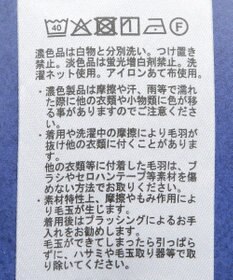 40
F
濃色品は白物と分別洗い。つけ置き
禁止。淡色品は蛍光増白剤禁止。洗
濯ネット使用。アイロンあて布使用。
・濃色製品は摩擦や汗、雨等で濡れ
た際に他の衣類や小物類に色が移
る事がありますのでご注意くださ
い。
・着用や洗濯中の摩擦により毛羽が
抜けて他の衣類に付くことがあり
ます。
他の衣類等に付着した毛羽は、ブ
ラシやセロハンテープ等素材を傷
めない方法でお取りください。
・素材特性上、摩擦やもみ作用によ
り毛玉が生じます。
着用後はブラッシングによるお手
入れをお勧めします。
毛玉ができてしまったら引っぱらず
に、ハサミや毛玉取り器等で取
り除いてください。